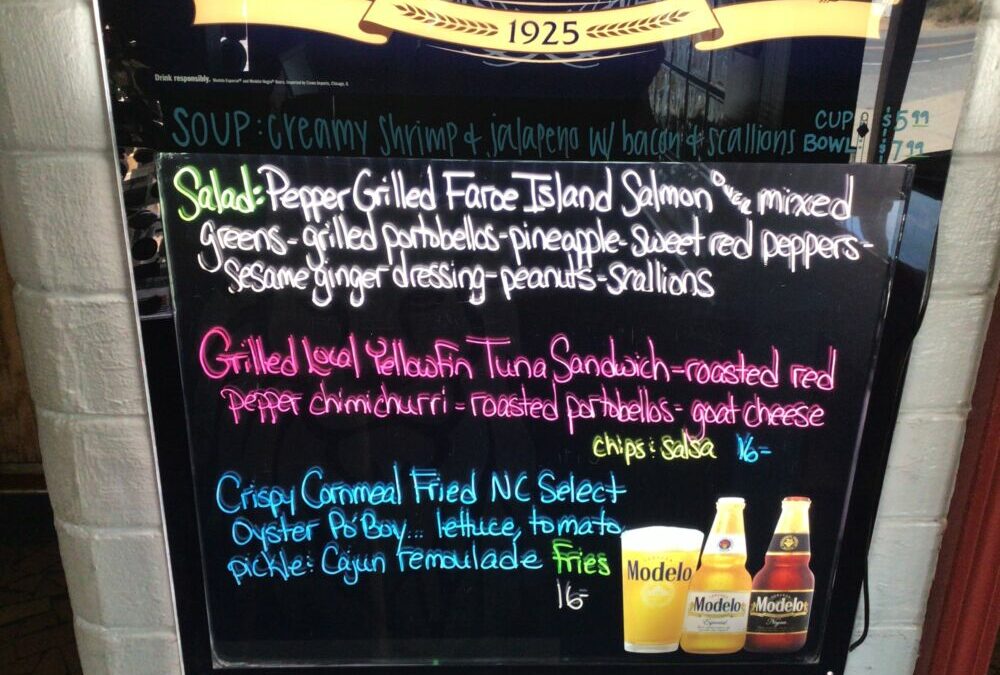 1925
Drink responsibly.
SOUP: Creamy Shrimp & jalapeno w/ bacon & scallions CUP $5.99
BOWL $7.99
Salad: Pepper Grilled Faroe Island Salmon over mixed
greens - grilled portobellos - pineapple - sweet red peppers -
sesame ginger dressing - peanuts - scallions
Grilled Local Yellowfin Tuna Sandwich - roasted red
pepper chimichurri - roasted portobellos - goat cheese
chips & salsa 16-
Crispy Cornmeal Fried NC Select
Oyster Po'Boy... lettuce, tomato
pickle & Cajun remoulade Fries
16-
Modelo
Modelo
Especial
Modelo
Negra